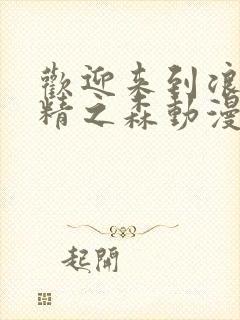 歡迎来到浪
精之森動漫
起開